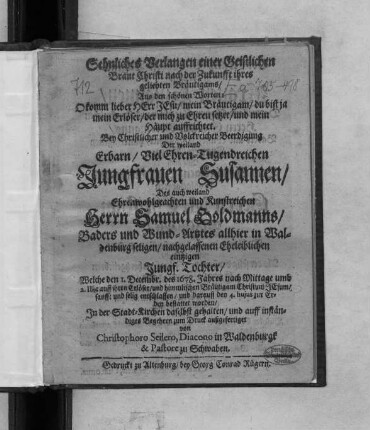 712
Sehnliches Verlangen einer Geistlichen
Braut Christi nach der Zukunfft ihres
geliebten Bräutigams/
Aus den schönen Worten:
O komm lieber HErr JEsu/ mein Bräutigam/ du bist ja
mein Erlöser/ der mich zu Ehren setzet/ und mein
Häupt auffrichtet.
Bey Christlicher und Volckreicher Beerdigung
Der weiland
Erbarn/ Viel Ehren-Tugendreichen
Jungfrauen Susannen/
Des auch weiland
Ehrenwohlgeachten und Kunstreichen
Herrn Samuel Goldmanns/
Baders und Wund-Artztes allhier in Wal-
denburg seligen/ nachgelassenen Eheleiblichen
eintzigen
Jungf. Tochter/
Welche den 1. Decembr. des 1678. Jahres nach Mittage umb
2. Uhr auff ihren Erlöser/ und himmlischen Bräutigam Christum JEsum/
sanfft und selig entschlaffen/ und darauff den 4. hujus zur Er-
den bestattet worden/
In der Stadt-Kirchen daselbst gehalten/ und auff instän-
diges Begehren zum Druck außgefertiget
von
Christophoro Seilero, Diacono in Waldenburgk
& Pastore zu Schwaben.
Gedruckt zu Altenburg/ bey Georg Conrad Rügern.